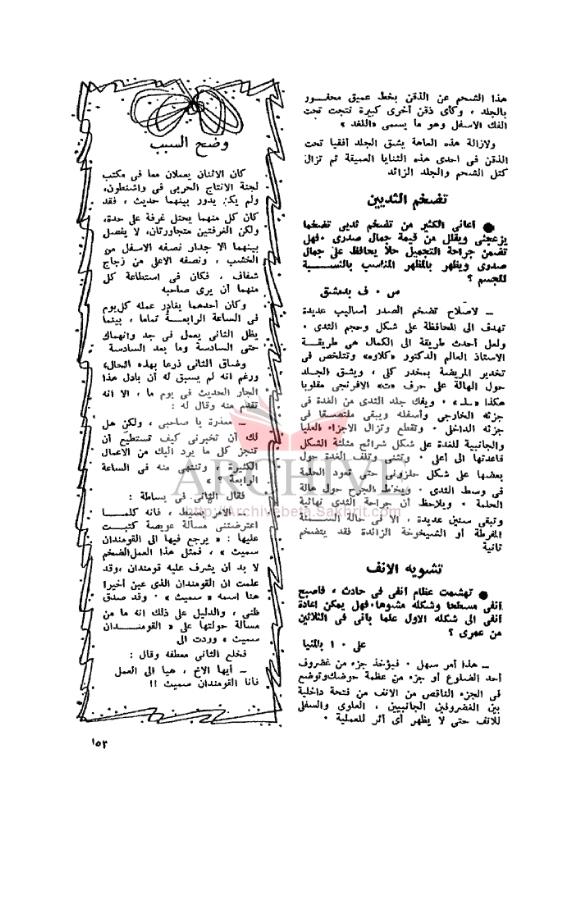 هذا الشحم عن الذقن بخط عميق محفور
بالجلد ، وكأى ذقن أخرى كبيرة نتجت تحت
الفك الاسفل وهو ما يسمى «اللغد »
ولازالة هذه العاهة يشق الجلد أفقيا تحت
الذقن فى احدى هذه الثنايا العميقة ثم تزال
كتل الشحم والجلد الزائد
تضخم الثديين
● أعانى الكثير من تضخم ثديى تضخما
يزعجنى ويقلل من قيمة جمال صدرى ٠فهل
تضمن جراحة التجميل حلا يحافظ على جمال
صدرى ويظهر بالمظهر المناسب بالنسبة
للجسم ؟
س ٠ ف بدمشق
ــ لاصلاح تضخم الصدر أساليب عديدة
تهدف الى المحافظة على شكل وحجم الثدى ٠
ولعل أحدث طريقة الى الكمال هى طريقة
الاستاذ العالم الدكتور «كلارم» وتتلخص فى
تخدير المريضة بمخدر كلى ، ويشق الجلد
حول الهالة على حرف «ت» الافرنجى مقلوبا
هكذا «ـلـ» ٠ ويفك جلد الثدى من الغدة فى
جزئه الخارجى وأسفله ويبقى ملتصقا فى
جزئه الداخل ٠ وتقطع وتزال الاجزاء العليا
والجانبية للغدة على شكل شرائح مثلثة الشكل
قاعدتها الى أعلى ٠ وتثنى وتلف الغدة حول
بعضها على شكل حلزونى حتى تعود الحلمة
فى وسط الثدى ٠ ويخيط الجرح حول هالة
الحلمة ٠ ويلاحظ أن جراحة الثدى نهائية
وتبقى سنين عديدة ، الا فى حالة السمنة
المفرطة أو الشيخوخة الزائدة فقد يتضخم
ثانية
تشويه الانف
● تهشمت عظام أنفى فى حادث ، فأصبح
أنفى مسطحا وشكله مشوها٠ فهل يمكن اعادة
أنفى الى شكله الاول علما بأنى فى الثلاثين
من عمرى ؟
على ٠ أ بالمنيا
ــ هذا أمر سهل ٠ فيؤخذ جزء من غضروف
أحد الضلوع أو جزء من عظمة حوضك وتوضع
فى الجزء الناقص من الانف من فتحة داخلية
بين الغضروفين الجانبيين ، العلوى والسفلى
للانف حتى لا يظهر أى أثر للعملية ٠
وضح السبب
كان الاثنان يعملان معا فى مكتب
لجنة الانتاج الحربى فى واشنطون،
ولم يكن يدور بينهما حديث ، فقد
كان كل منهما يحتل غرفة على حدة،
ولكن الغرفتين متجاورتان، لا يفصل
بينهما الا جدار نصفه الاسفل من
الخشب ، ونصفه الاعلى من زجاج
شفاف ، فكان فى استطاعة كل
منهما أن يرى صاحبه
وكان أحدهما يغادر عمله كل يوم
فى الساعة الرابعة تماما ، بينما
يظل الثانى يعمل فى جد وانهماك
حتى السادسة وما بعد السادسة
وضاق الثانى ذرعا بهذه الحال،
ورغم انه لم يسبق له أن بادل هذا
الجار الحديث فى يوم ما ، الا انه
تقدم منه وقال له :
ــ معذرة يا صاحبى ، ولكن هل
لك أن تخبرنى كيف تستطيع أن
تنجز كل ما يرد اليك من الاعمال
الكثيرة ، وتنتهى منه فى الساعة
الرابعة ؟
فقال الثانى فى بساطة :
ــ الامر بسيط ، فانه كلما
اعترضتنى مسألة عويصة كتبت
عليها : « يرجع فيها الى القومندان
سميث » ، فمثل هذا العمل الضخم
لا بد أن يشرف عليه قومندان ،وقد
علمت ان القومندان الذى عين أخيرا
هنا اسمه « سميث » ٠ وقد صدق
ظنى ، والدليل على ذلك انه ما من
مسألة حولتها على « القومندان
سميث » ورددت الى
فخلع الثانى معطفه وقال :
ــ أيها الاخ ، هيا الى العمل
فأنا القومندان سميث !!
١٥٣
ARCHIVE
http://Archivebeta.Sakhrit.com